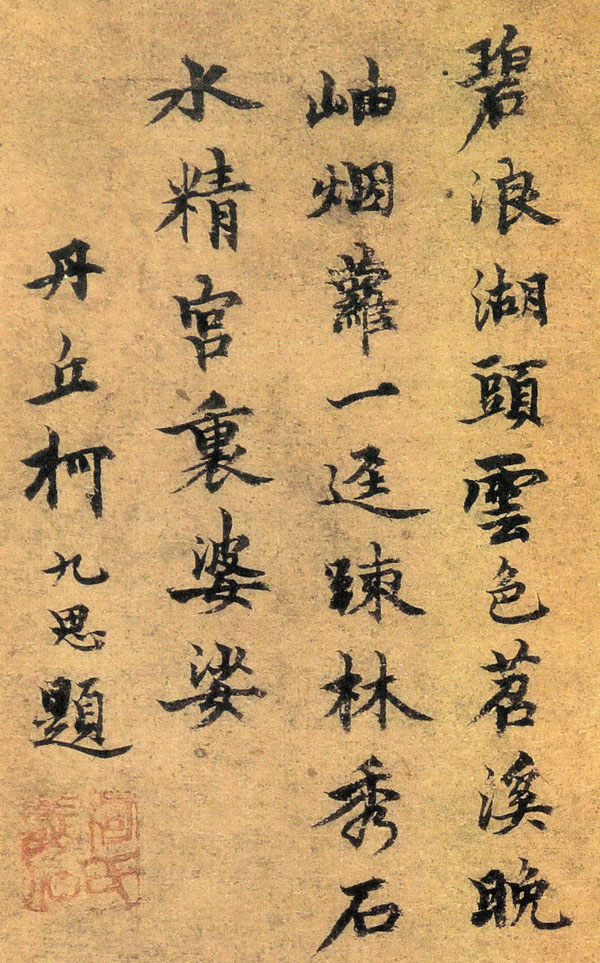 碧浪湖頭雲色苕溪晚
岫烟蘿一逕踈林秀石
水精宮裏婆娑
丹丘柯九思題